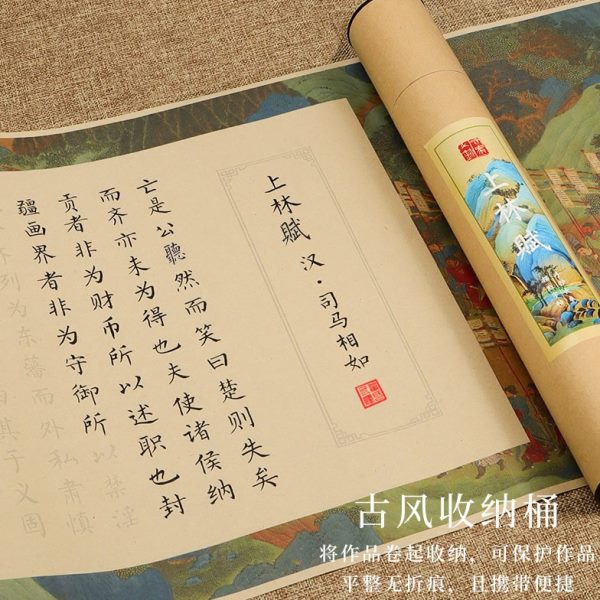 上林賦 汉·司马相如
亡是公聽然而笑曰楚则失矣
而齐亦未为得也夫使诸侯纳
贡者非为财币所以述职也封
疆画界者非为守御所以禁淫
列为东藩而外私肃慎
其于义固
上林賦
古风收纳桶
将作品卷起收纳，可保护作品
平整无折痕，且携带便捷